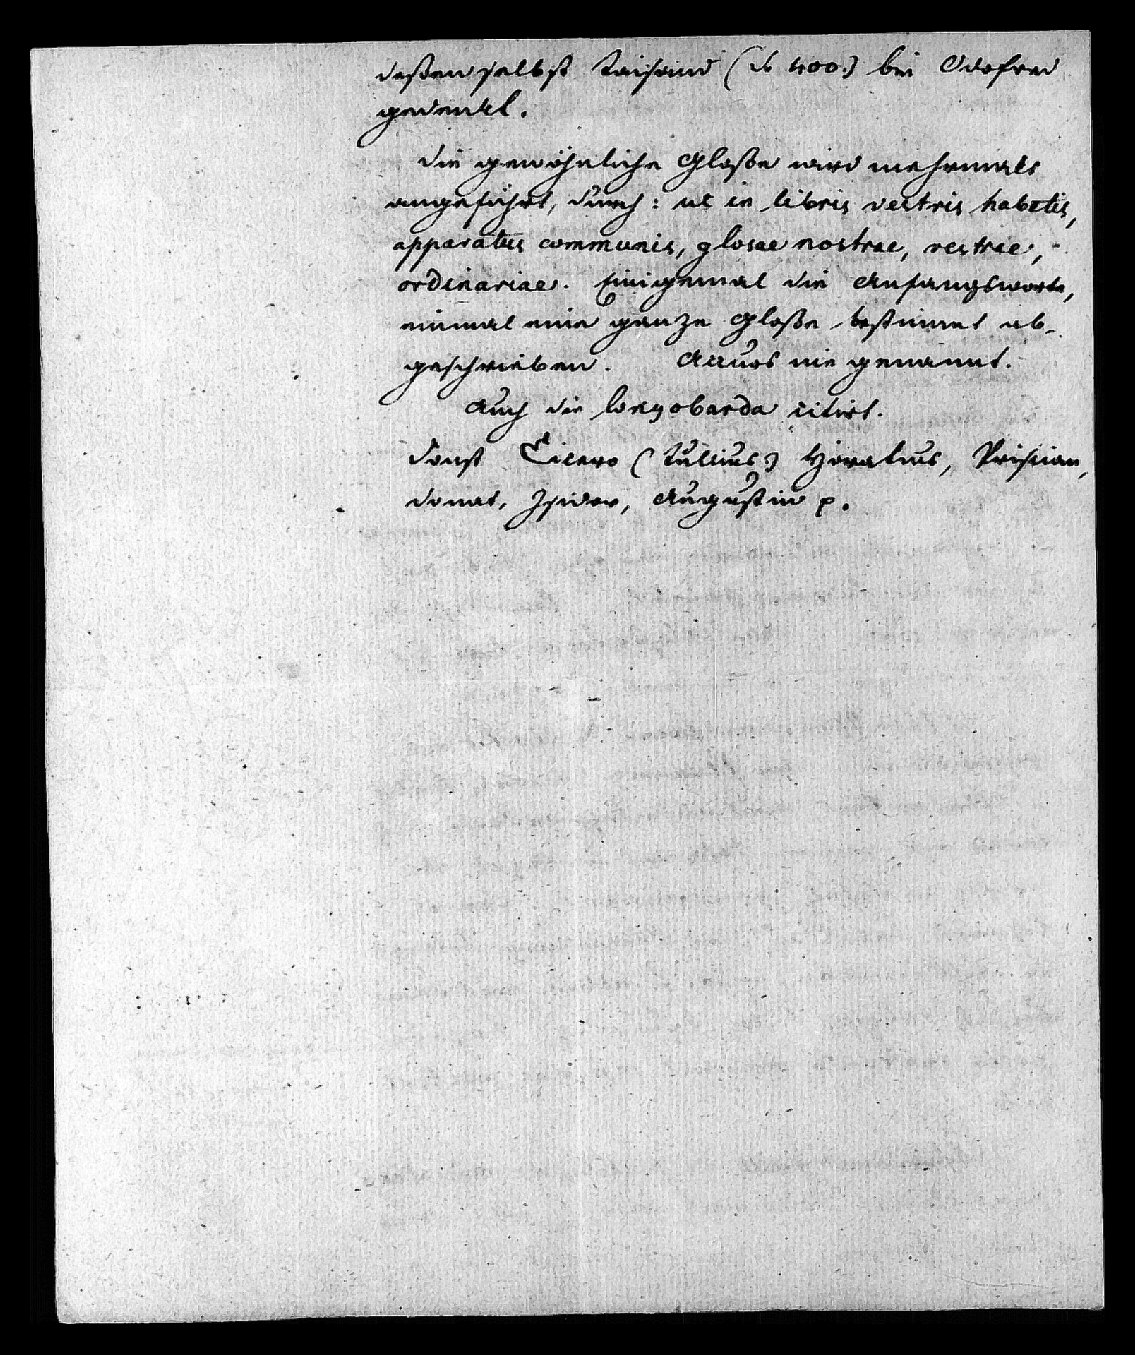 deßen selbst Taisand (S. 400.) bei Odofred
gedenkt.
Die gewöhnliche Gloße wird mehrmals
angeführt, durch: ut in libris vestris habetis,
apparatus communis, glosae nostrae, vestrae,
ordinariae. Einigemal die Anfangsworte,
einmal eine ganze Gloße bestimmt ab-
geschrieben. Accurs nie genannt.
Auch die Longobarda citirt.
Sonst Cicero (Tullius) Horatius, Priscian,
Donat, Isidor, Augustin p.